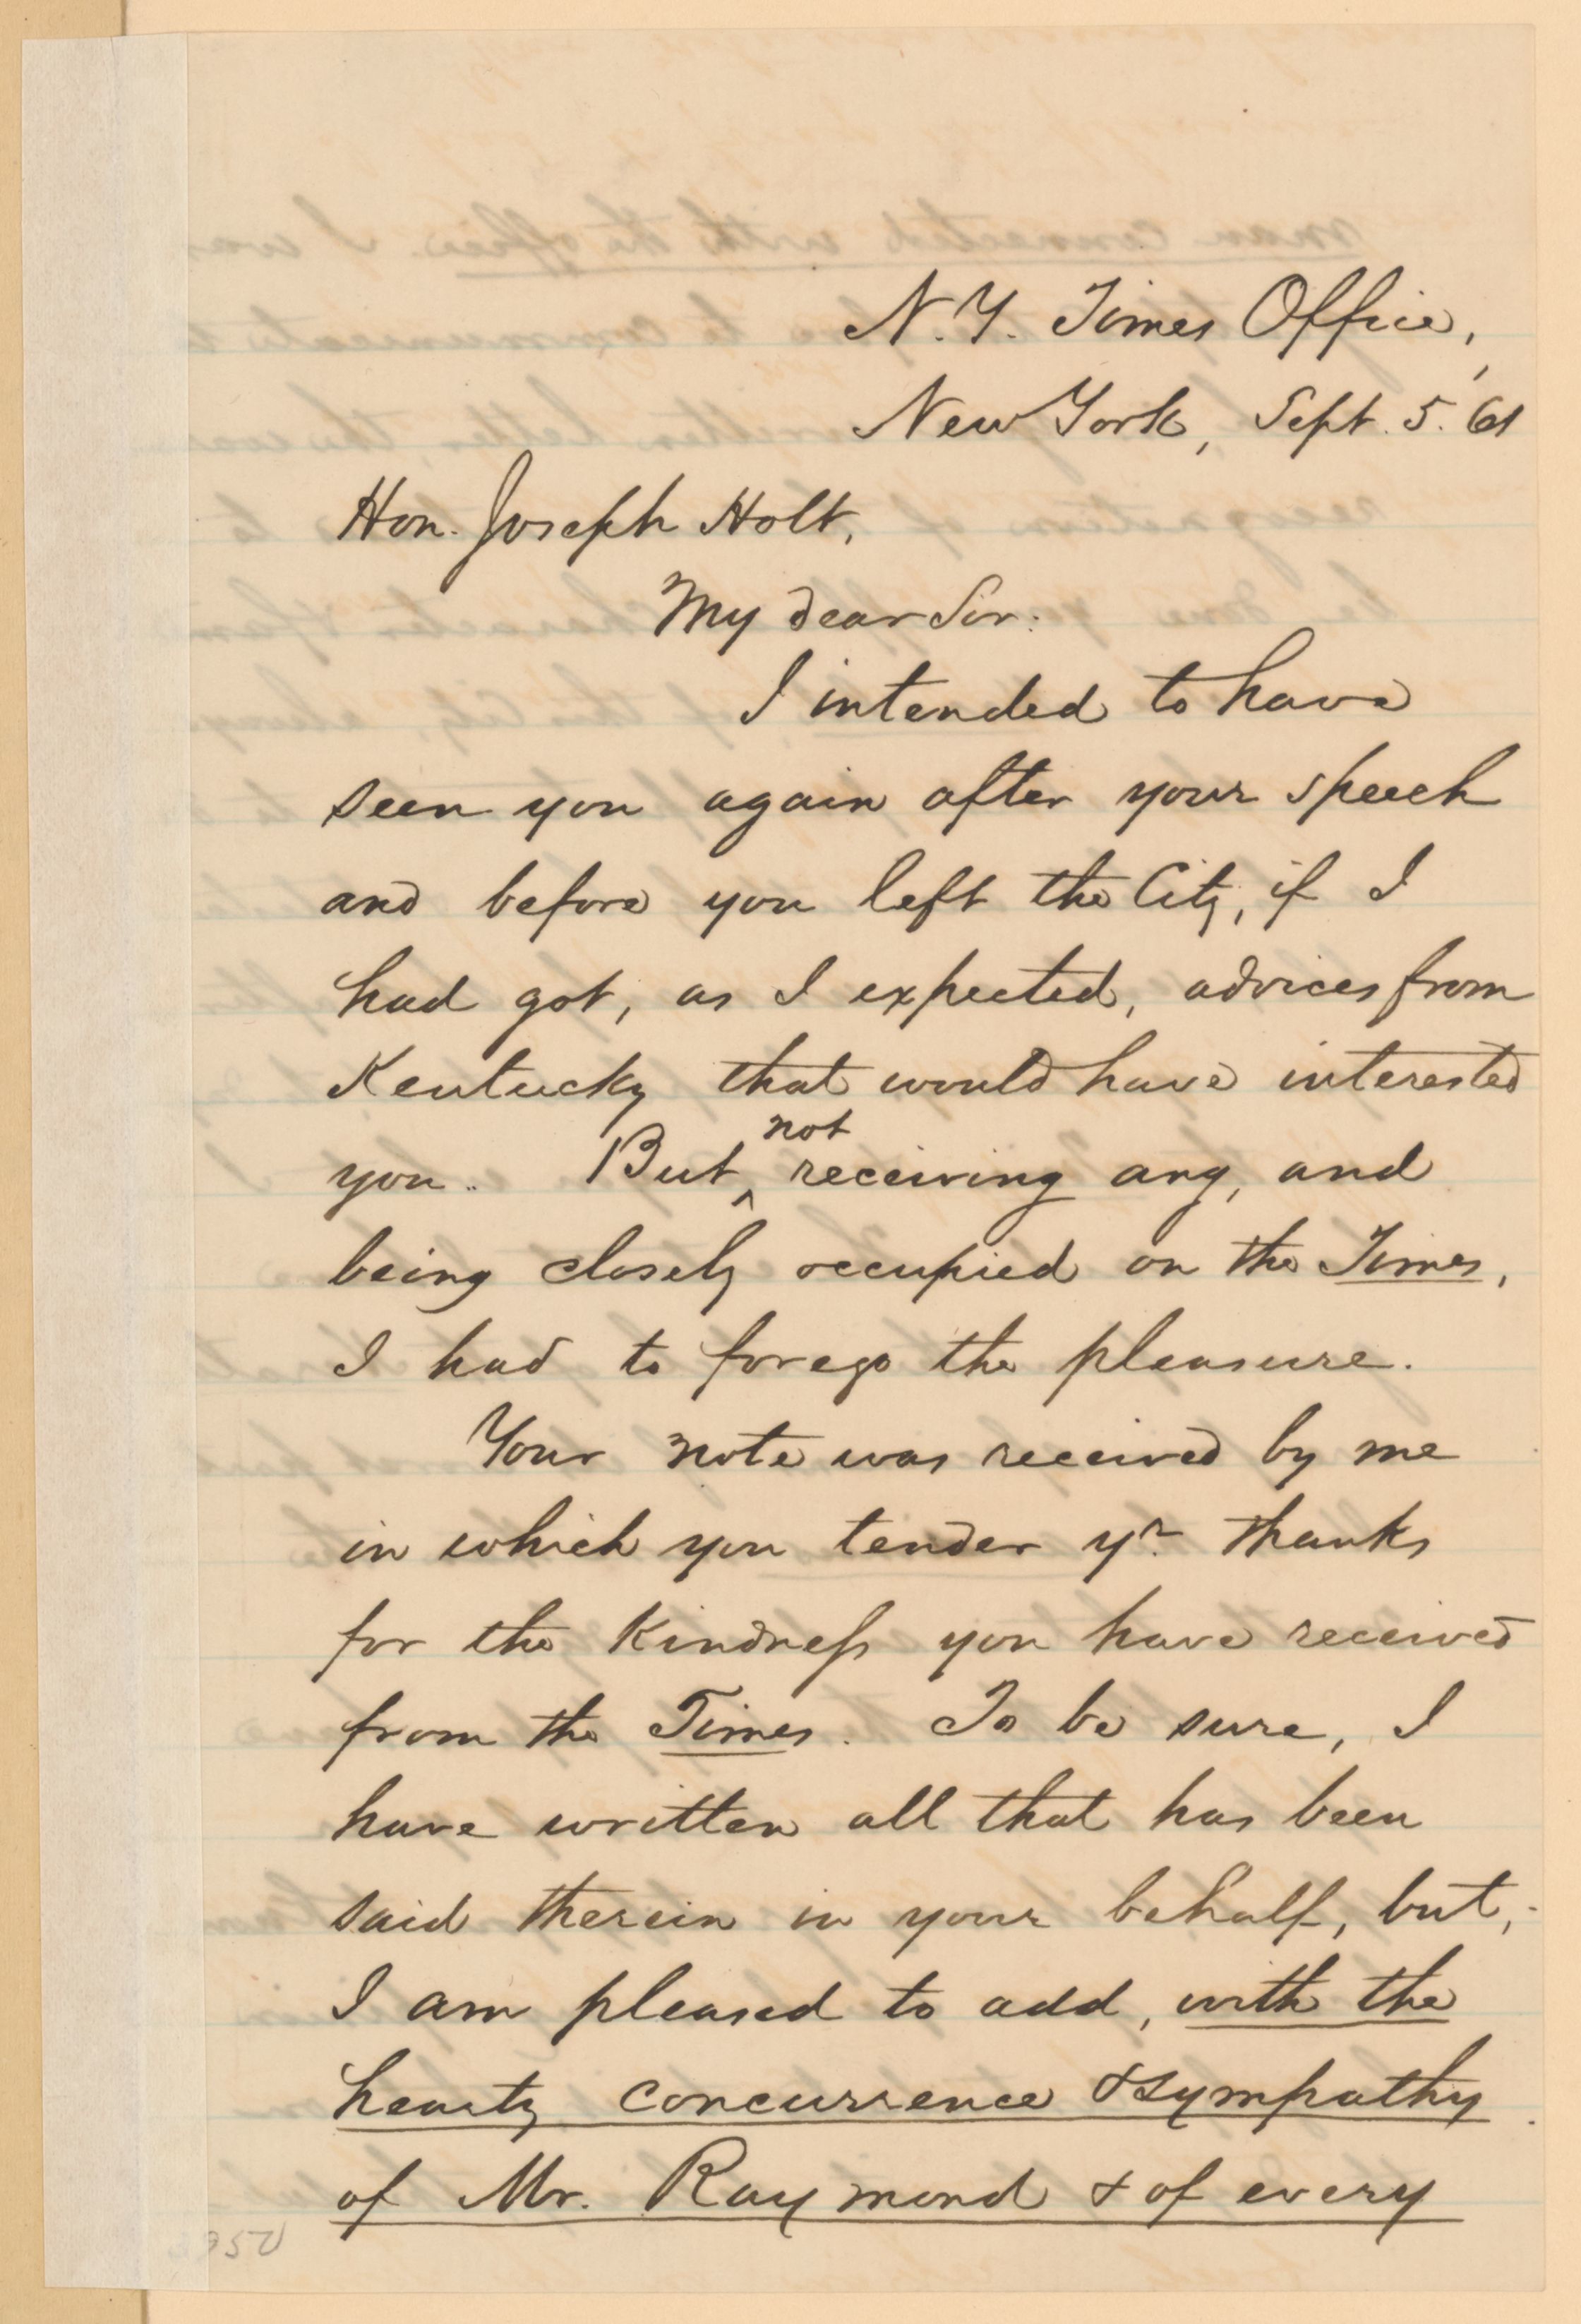 N.Y. Times Office,
New York, Sept. 5. '61
Hon. Joseph Holt,
My dear Sir:
I intended to have
seen you again after your speech
and before you left the City, if I
had got, as I expected, advices from
Kentucky that would have interested
you. But ^not receiving any, and
being closely occupied on the Times,
I had to forego the pleasure.
Your note was received by me
in which you tender yr. thanks
for the kindness you have received
from the Times. To be sure, I
have written all that has been
said therein in your behalf, but,
I am pleased to add, with the
hearty concurrence & sympathy
of Mr. Raymond & of every